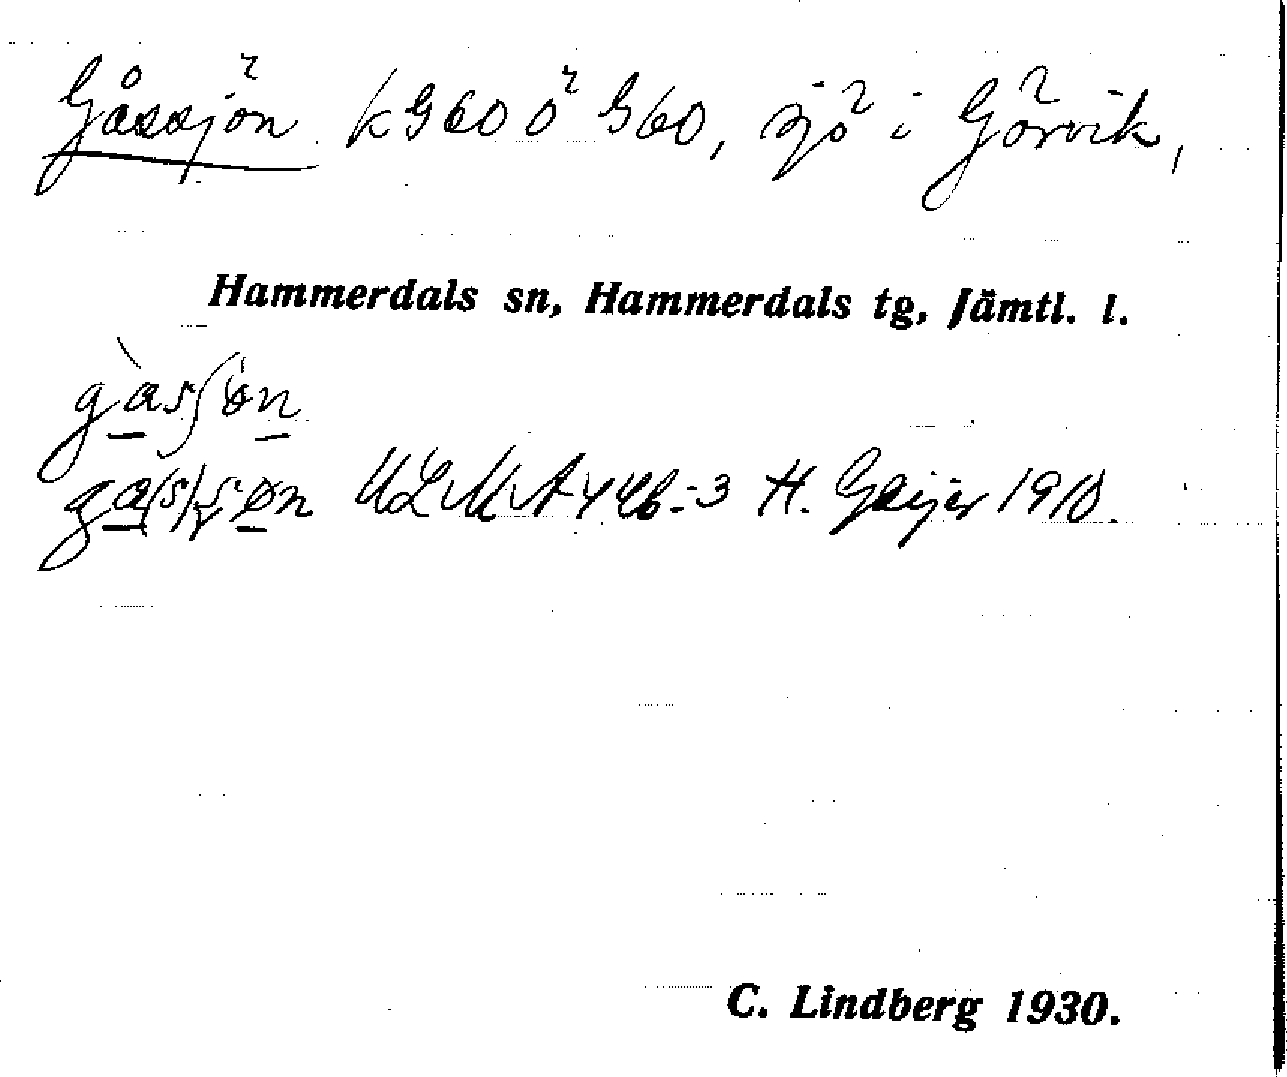 Gåssjön k G60 ö G60, sjö i Görvik,
Hammerdals sn, Hammerdals tg, Jämtl. l.
gàsʃøn
ga(s)ʂøn ULMA 446:3 H. Geijer 1910.
C. Lindberg 1930.